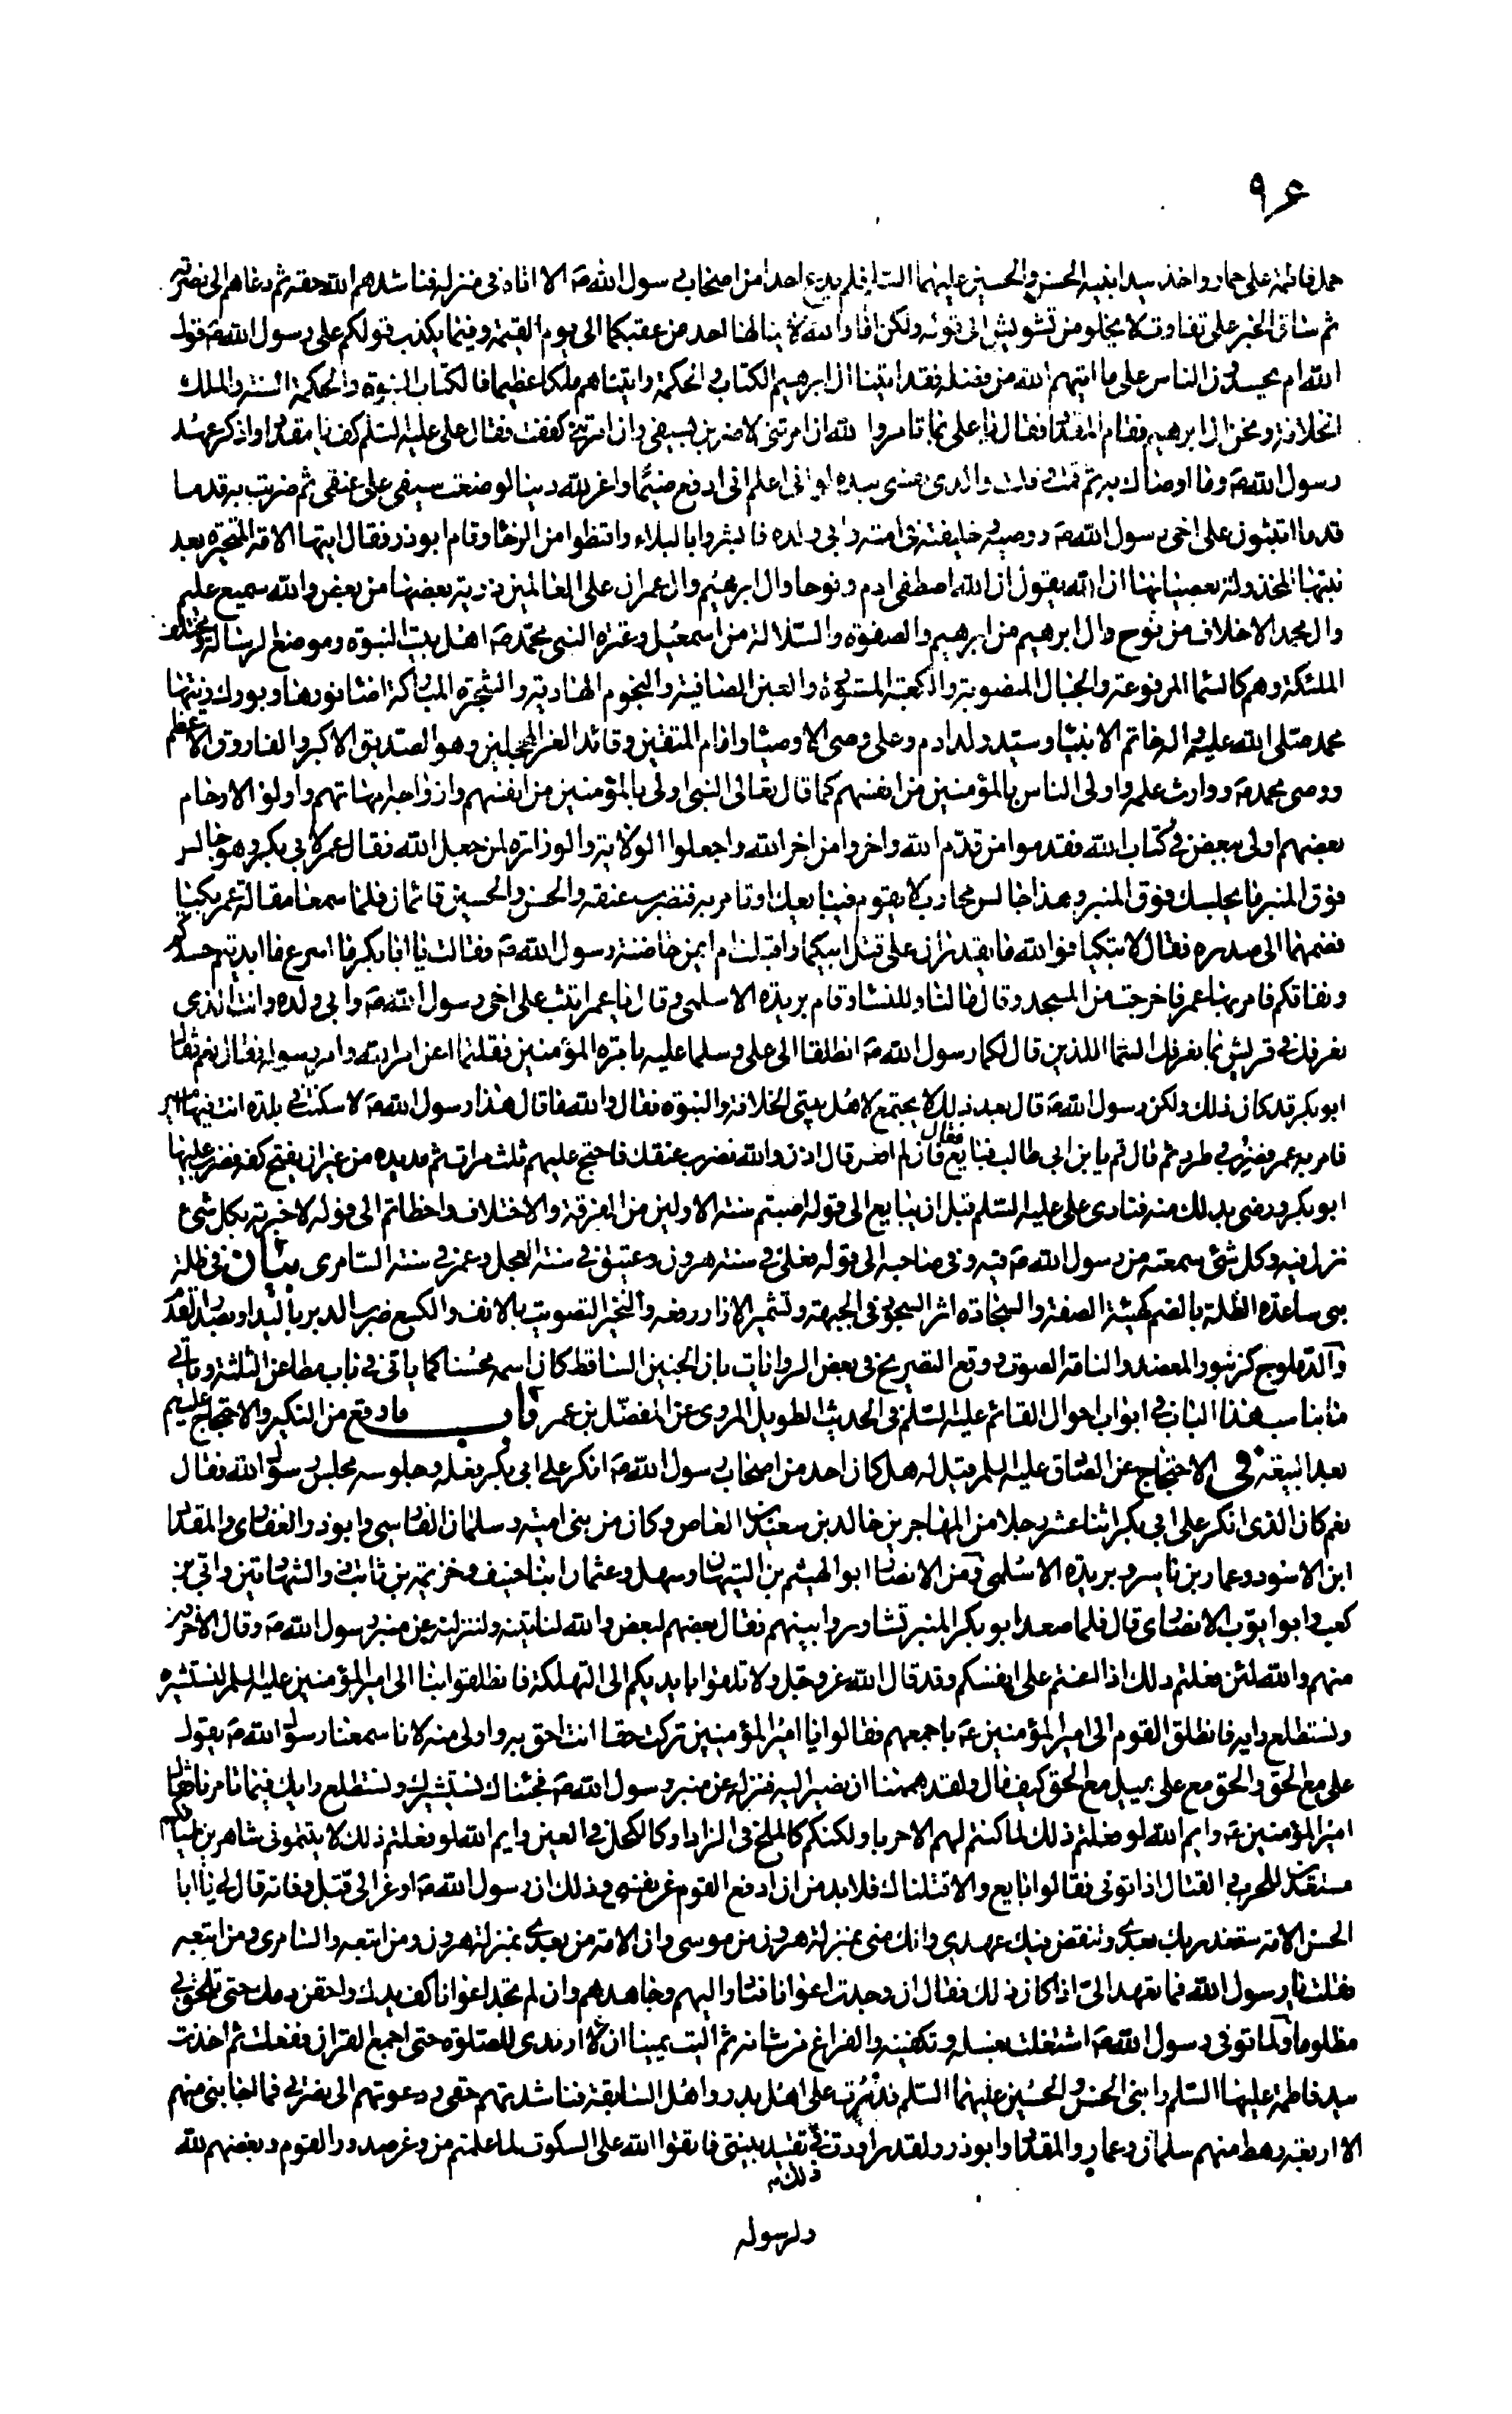 ٩۶
حمل فاطمة على حمار واخذ بيد ابنيه الحسن والحسين عليهما السلم فلم يدع احدا من اصحاب رسول الله ص الا اتاه فى منزله فناشدهم الله حقه ثم دعاهم الى نصرته
ثم ساق الخبر على تفاوت لا يخلو من تشويش الى قوله ولكن والله لا ينالها احد من عقبكما الى يوم القيمة وفيما يكذب قولكم على رسول الله ص قول
الله ام يحسدون الناس على ما اتيهم الله من فضله فقد اتينا ال ابرهيم الكتاب و الحكمة واتيناهم ملكا عظيما فالكتاب النبوة والحكمة السنة والملك
الخلافة ونحن ال ابرهيم فقام المقداد فقال يا على بما تامر والله ان امرتنى لاضربن بسيفى وان امرتنى كففت فقال على عليه السلم كف يا مقداد واذكر عهد
رسول الله ص وما اوصاك به ثم قمت وقلت والذى نفسى بيده لو انى اعلم انى ادفع ضيما واعز لله دينا لوضعت سيفى على عنقى ثم ضربت به قدما
قدما اتثبون على اخى رسول الله ص ووصيه وخليفته فى امته وابى ولده فابشروا بالبلاء واقنطوا من الرخاء وقام ابوذر فقال ايتها الامة المتحيرة بعد
نبيها المخذولة بعصيانها ان الله يقول ان الله اصطفى ادم ونوحا وال ابرهيم وال عمران على العالمين ذرية بعضها من بعض والله سميع عليم
وال محمد الاخلاف من نوح وال ابرهيم من ابرهيم والصفوة والسلالة من اسمعيل وعترة النبى محمد ص اهل بيت النبوة وموضع الرسالة ومختلف
الملئكة وهم كالسماء المرفوعة والجبال المنصوبة والكعبة المستورة والعين الصافية والنجوم الهادية والشجرة المباركة اضاء نورها وبورك زيتها
محمد صلى الله عليه واله خاتم الانبياء وسيد ولد ادم وعلى وصى الاوصياء وامام المتقين وقائد الغر المحجلين وهو الصديق الاكبر والفاروق الاعظم
ووصى محمد ص ووارث علمه واولى الناس بالمؤمنين من انفسهم كما قال تعالى النبى اولى بالمؤمنين من انفسهم وازواجه امهاتهم واولو الارحام
بعضهم اولى ببعض فى كتاب الله فقدموا من قدم الله واخروا من اخر الله واجعلوا الولاية والوزارة لمن جعل الله فقال عمر لابى بكر وهو جالس
فوق المنبر ما يجلسك فوق المنبر وهذا جالس محارب لا يقوم فيبايعك او تامر به فنضرب عنقه والحسن والحسين قائمان فلما سمعا مقالة عمر بكيا
فضمهما الى صدره فقال لا تبكيا فو الله ما يقدران على قتل ابيكما واقبلت ام ايمن حاضنة رسول الله ص وقالت يا ابا بكر ما اسرع ما ابديتم حسدكم
ونفاقكم فامر بها عمر فاخرجت من المسجد وقال ما لنا وللنساء وقام بريدة الاسلمى وقال يا عمر اتثب على اخى رسول الله ص وابى ولده وانت الذى
نعرفك فى قريش بما نعرفك الستما اللذين قال لكما رسول الله ص انطلقا الى على وسلما عليه بامرة المؤمنين فقلتما اعن امر الله وامر رسوله فقال نعم فقال
ابو بكر قد كان ذلك ولكن رسول الله ص قال بعد ذلك لا يجتمع لاهل بيتى الخلافة والنبوة فقال والله ما قال هذا رسول الله ص لا سكنت فى بلدة انت فيها امير
فامر به عمر فضرب وطرد ثم قال قم يا بن ابى طالب فبايع فقال فان لم افعل قال اذن والله نضرب عنقك فاحتج عليهم ثلث مرات ثم مد يده من غير ان يفتح كفه فضرب عليها
ابو بكر ورضى بذلك منه فنادى على عليه السلم قبل ان يبايع الى قوله اصبتم سنة الاولين من الفرقة والاختلاف واخطاتم الى قوله لاخبرته بكل شىء
نزل فيه وكل شىء سمعته من رسول الله ص فيه وفى صاحبه الى قوله فعلى فى سنة هرون وعتيق فى سنة العجل وعمر فى سنة السامرى بيان فى ظلة
بنى ساعدة الظلة بالضم كهيئة الصفة والسجادة اثر السجود فى الجبهة وتشمير الازار رفعه والنخير التصويت بالانف والكسع ضرب الدبر باليد او بصدر القدم
والدملوج كزنبور المعضد والنامة الصوت ووقع التصريح فى بعض الروايات بان الجنين الساقط كان اسمه محسنا كما ياتى فى باب مطاعن الثلثة وياتى
ما يناسب هذا الباب فى ابواب احوال القائم عليه السلم فى الحديث الطويل المروى عن المفضل بن عمر باب ما وقع من النكير والاحتجاج عليهم
بعد البيعة فى الاحتجاج عن الصادق عليه السلم قيل له هل كان احد من اصحاب رسول الله ص انكر على ابى بكر فعله وجلوسه مجلس رسول الله فقال
نعم كان الذى انكر على ابى بكر اثنا عشر رجلا من المهاجرين خالد بن سعيد بن العاص وكان من بنى امية وسلمان الفارسى وابوذر الغفارى والمقداد
ابن الاسود وعمار بن ياسر وبريدة الاسلمى ومن الانصار ابو الهيثم بن التيهان وسهل وعثمان ابنا حنيف وخزيمة بن ثابت ذو الشهادتين وابى بن
كعب وابو ايوب الانصارى قال فلما صعد ابو بكر المنبر تشاوروا بينهم فقال بعضهم لبعض والله لناتينه ولننزلنه عن منبر رسول الله ص وقال الاخرون
منهم والله لئن فعلتم ذلك اذا اعنتم على انفسكم وقد قال الله عز وجل ولا تلقوا بايديكم الى التهلكة فانطلقوا بنا الى امير المؤمنين عليه السلم لنستشيره
ونستطلع رايه فانطلق القوم الى امير المؤمنين ع باجمعهم فقالوا يا امير المؤمنين تركت حقا انت احق به واولى منه لانا سمعنا رسول الله ص يقول
على مع الحق والحق مع على يميل مع الحق كيف مال ولقد هممنا ان نصير اليه فننزله عن منبر رسول الله ص فجئناك نستشيرك ونستطلع رايك فيما تامرنا فقال
امير المؤمنين ع وايم الله لو فعلتم ذلك لما كنتم لهم الا حربا ولكنكم كالملح فى الزاد او كالكحل فى العين وايم الله لو فعلتم ذلك لاتيتمونى شاهرين اسيافكم
مستعدين للحرب و القتال اذا اتونى فقالوا بايع والا قتلناك فلا بد من ان ادفع القوم عن نفسى وذلك ان رسول الله ص اوعز الى قبل وفاته قال لى يا ابا
الحسن الامة ستغدر بك بعدى وتنقض فيك عهدى وانك منى بمنزلة هرون من موسى وان الامة من بعدى بمنزلة هرون ومن اتبعه والسامرى ومن اتبعه
فقلت يا رسول الله فما تعهد الى اذا كان ذلك فقال ان وجدت اعوانا فبادر اليهم وجاهدهم وان لم تجد اعوانا كف يدك واحقن دمك حتى تلحق بى
مظلوما ولما توفى رسول الله ص اشتغلت بغسله وتكفينه والفراغ من شانه ثم اليت يمينا ان لا ارتدى للصلوة حتى اجمع القران ففعلت ثم اخذت
بيد فاطمة عليها السلم وابنى الحسن والحسين عليهما السلم فدرت على اهل بدر واهل السابقة فناشدتهم حقى ودعوتهم الى نصرتى فما اجابنى منهم
الا اربعة رهط منهم سلمان وعمار والمقداد وابوذر ولقد راودت فى تقييد بينتى فاتقوا الله على السكوت لما علمتم من وغر صدور القوم وبغضهم لله
ذلك
ولرسوله